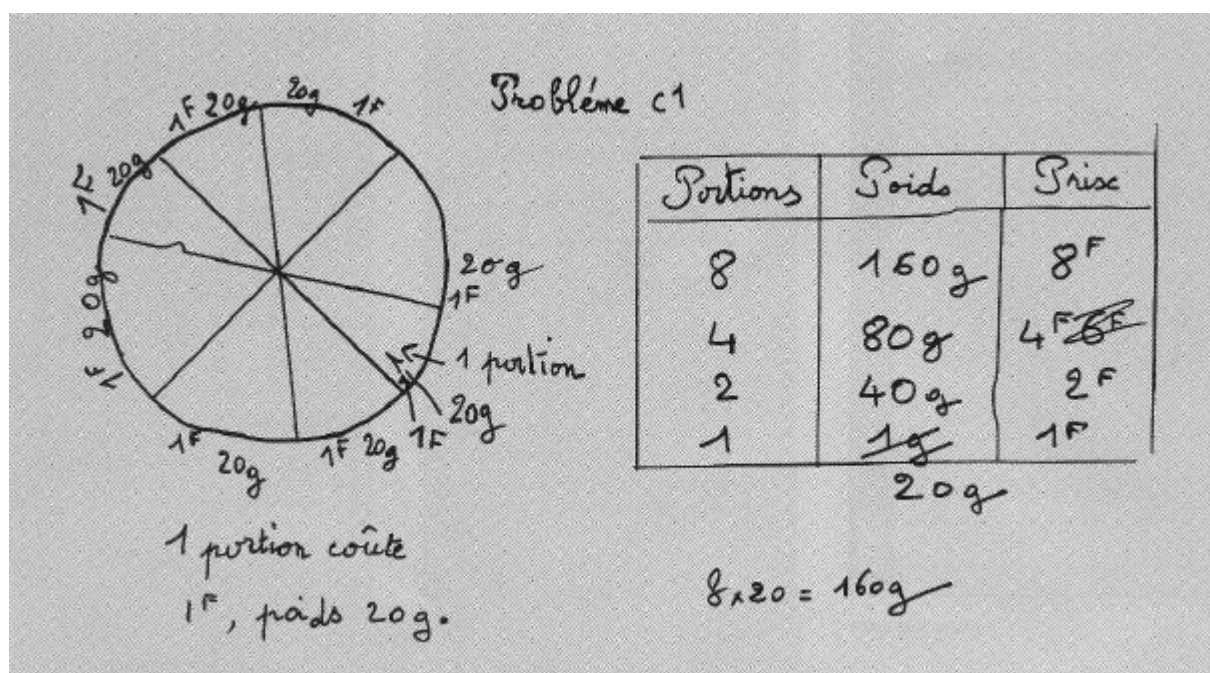 Probléme c1
20g 1F
1F 20g
1F 20g
20g
1F
20g
1F
1 portion
20g
1F
1F 20g
1F 20g
Portions Poids Prix
8 160g 8F
4 80g 4F 6F
2 40g 2F
1 1g 1F
20g
1 portion coûte
1F, poids 20g.
8x20 = 160g